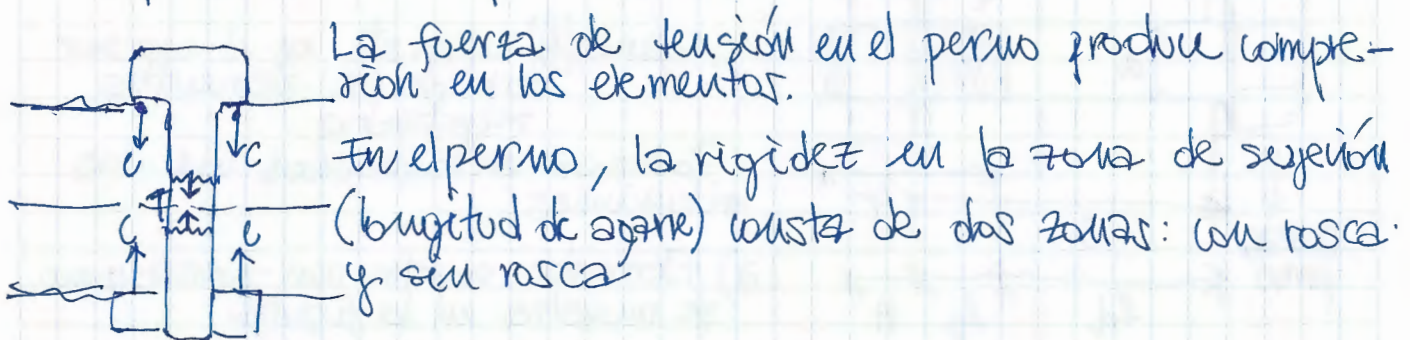 La fuerza de tensión en el perno produce compre-
sión en los elementos.
C C En el perno, la rigidez en la zona de sujeción
T
C C (longitud de agarre) consta de dos zonas: con rosca
y sin rosca